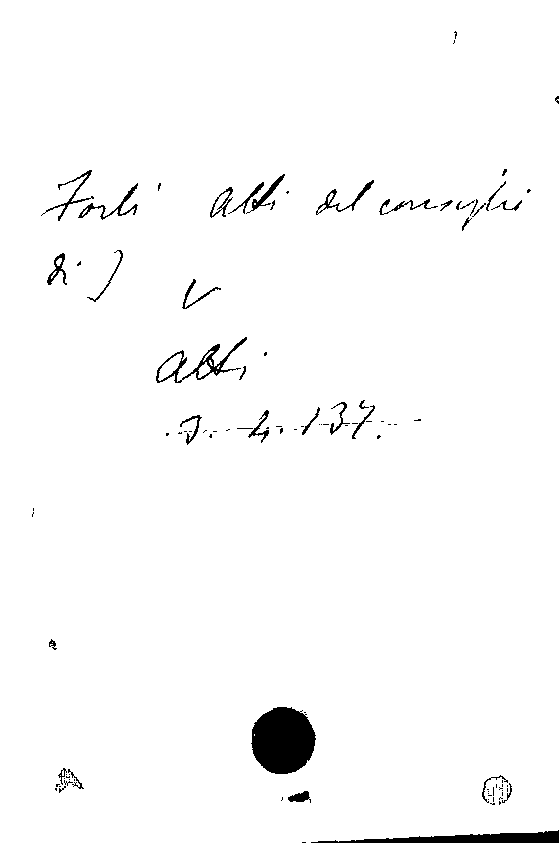 Forlì Atti del consiglio
di )
V
Atti
. J. 4. 137.